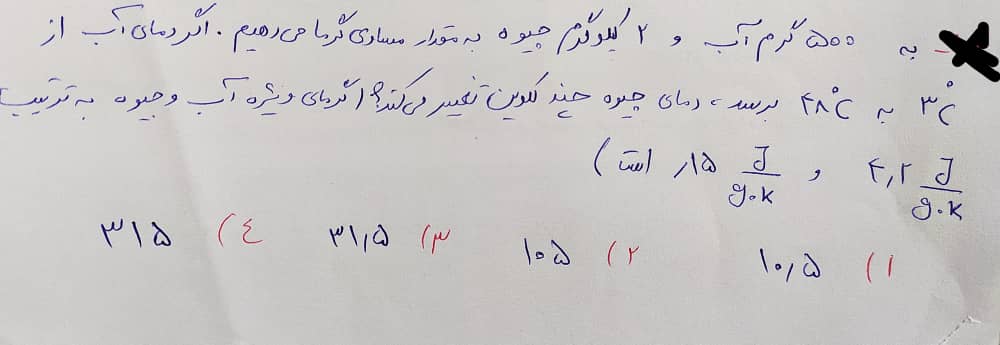 به ۵۰۰ گرم آب و ۲ کیلوگرم جیوه به مقدار مساوی گرما می دهیم . اگر دمای آب از
۳°C به ۴۸°C برسد ، دمای جیوه چند کلوین تغییر می کند؟ (گرمای ویژه آب و جیوه به ترتیب
۴٫۲ J/g.k و ۱۵٫ J/g.k است )
۱) ۱۰٫۵ ۲) ۱۰۵ ۳) ۳۱٫۵ ٤) ۳۱۵